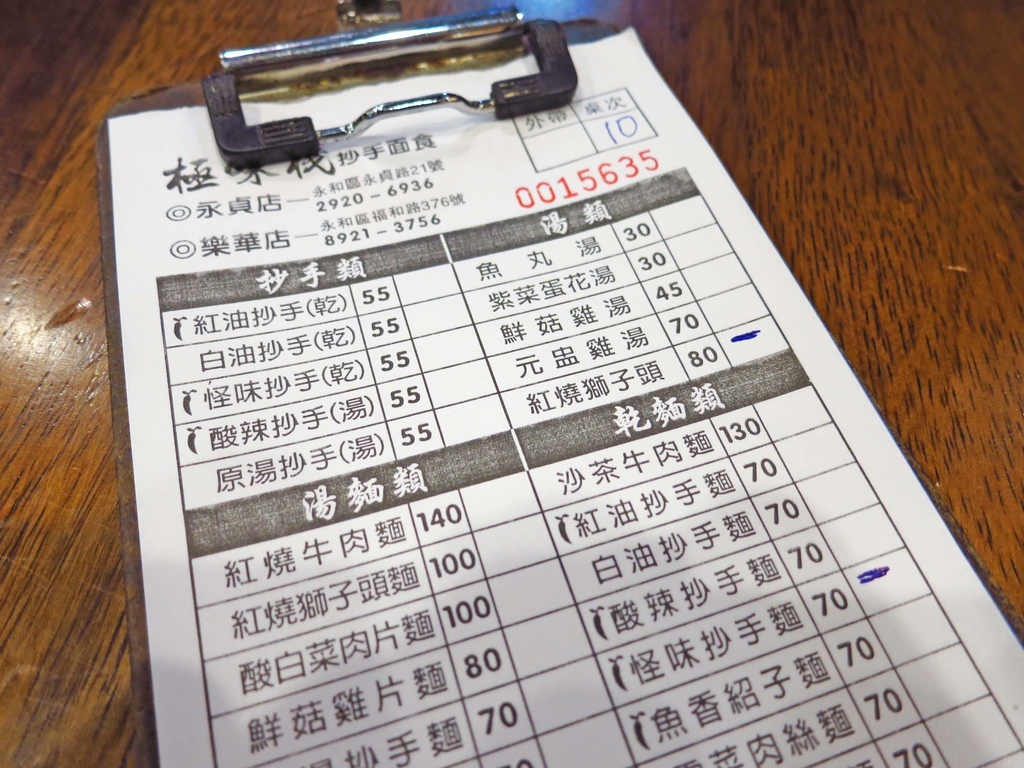 外帶 桌次
10
極味 抄手面食
0015635
◎永貞店—永和區永貞路21號
2920-6936
◎樂華店—永和區福和路376號
8921-3756
抄手類
紅油抄手(乾) 55
白油抄手(乾) 55
怪味抄手(乾) 55
酸辣抄手(湯) 55
原湯抄手(湯) 55
湯麵類
紅燒牛肉麵 140
紅燒獅子頭麵 100
酸白菜肉片麵 100
鮮菇雞片麵 80
湯抄手麵 70
70
湯類
魚丸湯 30
紫菜蛋花湯 30
鮮菇雞湯 45
元盅雞湯 70
紅燒獅子頭 80
乾麵類
沙茶牛肉麵 130
紅油抄手麵 70
白油抄手麵 70
酸辣抄手麵 70
怪味抄手麵 70
魚香紹子麵 70
菜肉絲麵 70
70